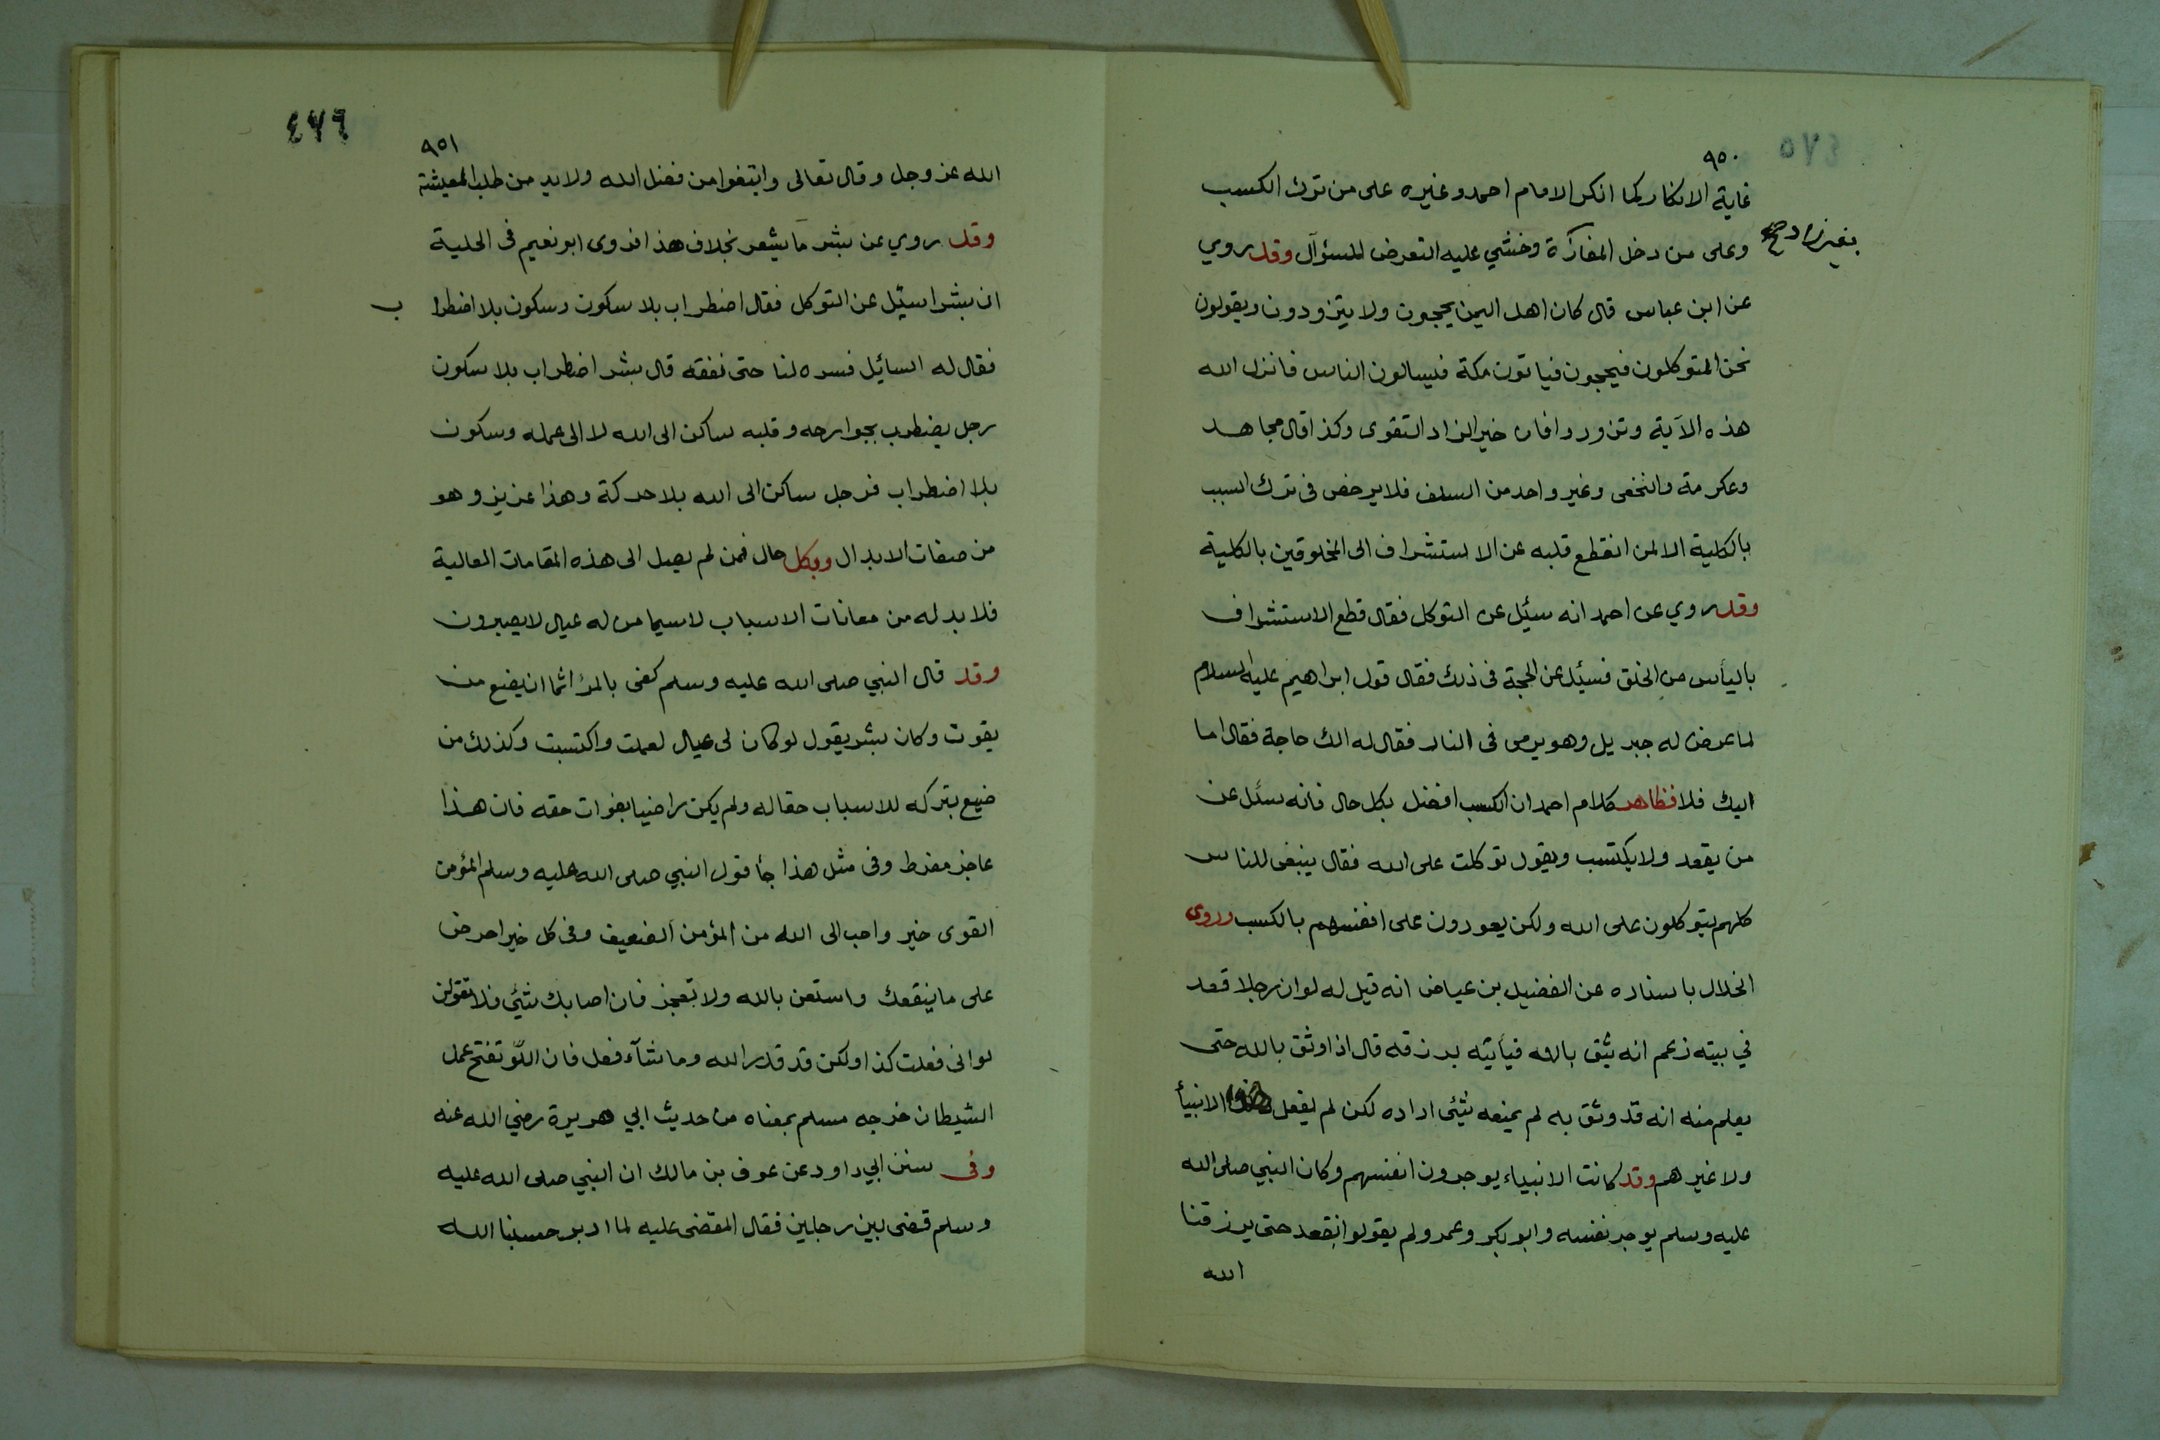 ٤٧٥
٩٥٠
غاية الانكار كما انكر الامام احمد وغيره على من ترك الكسب
وعلى من دخل المفازة وخشي عليه التعرض للسؤآل وقد روي
بغير زاد صح
عن ابن عباس قال كان اهل اليمن يحجون ولا يتزودون ويقولون
نحن المتوكلون فيحجون فياتون مكة فيسالون الناس فانزل الله
هذه الآية وتزودوا فان خير الزاد التقوى وكذا قال مجاهد
وعكرمة والنخعى وغير واحد من السلف فلا يرخص فى ترك السبب
بالكلية الا لمن انقطع قلبه عن الاستشراف الى المخلوقين بالكلية
وقد روي عن احمد انه سئيل عن التوكل فقال قطع الاستشراف
باليأس من الخلق فسئيل عن الحجة فى ذلك فقال قول ابراهيم عليه السلام
لما عرض له جبريل وهو يرمى فى النار فقال له الك حاجة فقال اما
اليك فلا فظاهر كلام احمد ان الكسب افضل بكل حال فانه سئل عن
من يقعد ولا يكتسب ويقول توكلت على الله فقال ينبغى للناس
كلهم يتوكلون على الله ولكن يعودون على انفسهم بالكسب وروى
الخلال باسناده عن الفضيل بن عياض انه قيل له لو ان رجلا قعد
في بيته زعم انه يثق بالله فيأتيه برزقه قال اذا وثق بالله حتى
يعلم منه انه قد وثق به لم يمنعه شئى اراده لكن لم يفعل هذا الانبيأ
ولا غيرهم وقد كانت الانبياء يوجرون انفسهم وكان النبي صلى الله
عليه وسلم يوجر نفسه وابو بكر وعمر ولم يقولوا نقعد حتى يرزقنا
الله
٤٧٦
٩٥١
الله عز وجل وقال تعالى وابتغوا من فضل الله ولابد من طلب المعيشة
وقد روي عن بشر ما يشعر بخلاف هذا فروى ابو نعيم فى الحلية
ان بشرا سئيل عن التوكل فقال اضطراب بلا سكون وسكون بلا اضطراب
فقال له السائيل فسره لنا حتى نفقه قال بشر اضطراب بلا سكون
رجل يضطرب بجوارحه وقلبه ساكن الى الله لا الى عمله وسكون
بلا اضطراب فرجل ساكن الى الله بلا حركة وهذا عزيز وهو
من صفات الابدال وبكل حال فمن لم يصل الى هذه المقامات العالية
فلا بد له من معانات الاسباب لاسيما من له عيال لا يصبرون
وقد قال النبي صلى الله عليه وسلم كفى بالمرء اثما ان يضيع من
يقوت وكان بشر يقول لو كان لى عيال لعملت واكتسبت وكذلك من
ضيع بتركه للاسباب حقا له ولم يكن راضيا بفوات حقه فان هذا
عاجز مفرط وفى مثل هذا جأ قول النبي صلى الله عليه وسلم المؤمن
القوى خير واحب الى الله من المؤمن الضعيف وفى كل خير احرص
على ما ينفعك واستعن بالله ولا تعجز فان اصابك شئي فلا تقولن
لو انى فعلت كذا ولكن قد قدر الله وما شآء فعل فان اللو تفتح عمل
الشيطان خرجه مسلم بمعناه من حديث ابي هريرة رضي الله عنه
وفى سنن ابي داود عن عوف بن مالك ان النبي صلى الله عليه
وسلم قضى بين رجلين فقال المقضى عليه لما ادبر حسبنا الله